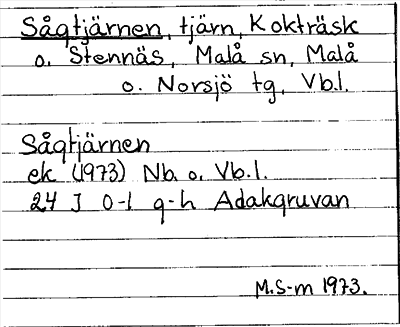 Sågtjärnen, tjärn, Kokträsk
o. Stennäs, Malå sn, Malå
o. Norsjö tg, Vb.l.
Sågtjärnen
ek (1973) Nb. o. Vb.l.
24 J 0-1 g-h Adakgruvan
M.S-m 1973.